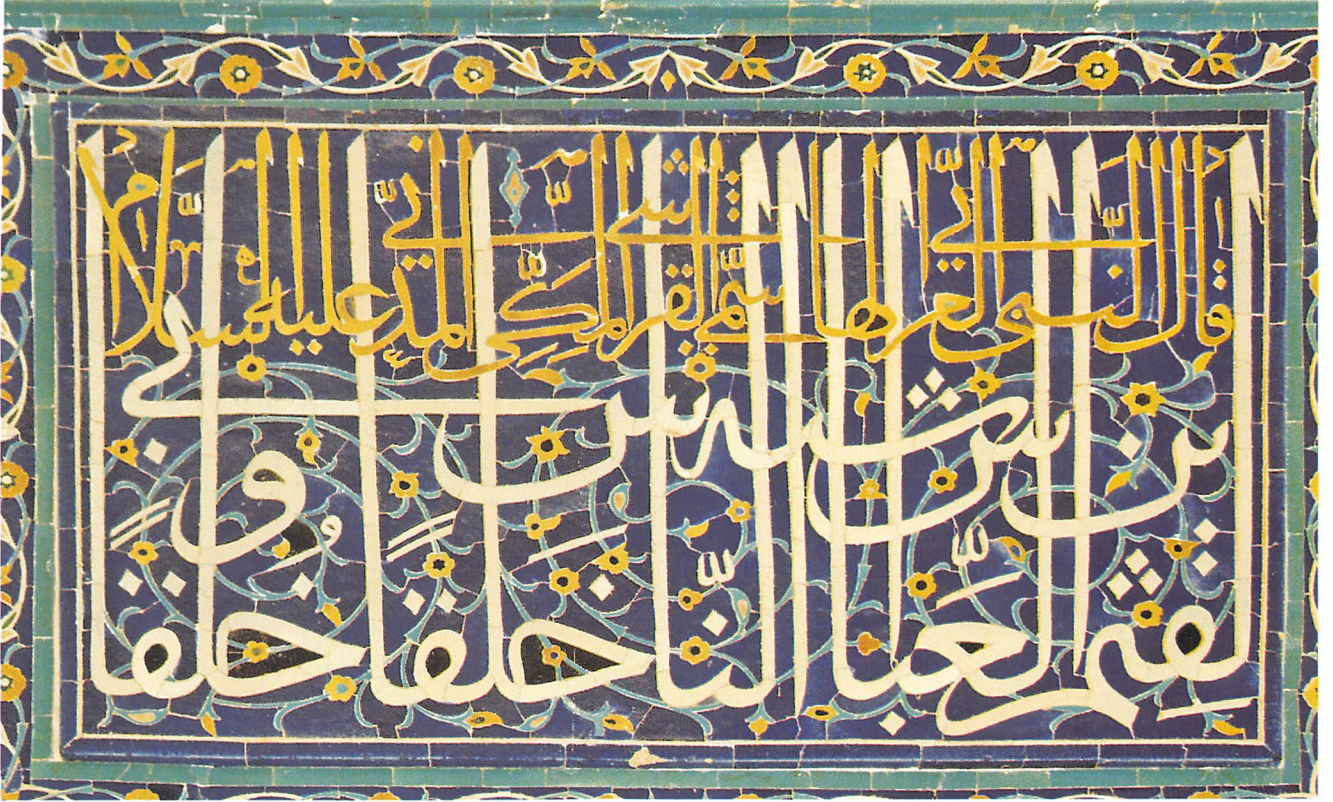 قال النبي العربي الهاشمي القرشي المكي المدني عليه السلام
لقثم بن العباس اشبه الناس بي خلقا و خلقا